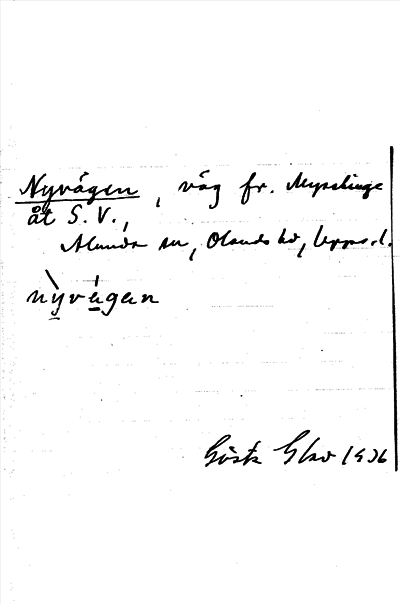 Nyvägen, väg fr. Mysslinge
åt S.V.,
Alunda sn, Olands hd, Uppsal.
nỳvá̱gan
Gösta Elar 1936